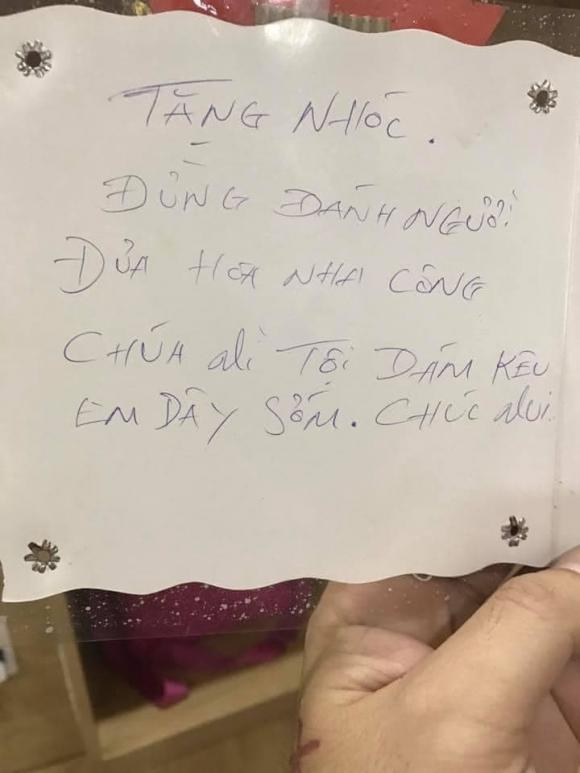 TẶNG NHÓC.
ĐỪNG ĐÁNH NGƯỜI
ĐƯA HOA NHA CÔNG
CHÚA vì TỘI DÁM KÊU
EM DẬY SỚM. CHÚC vui